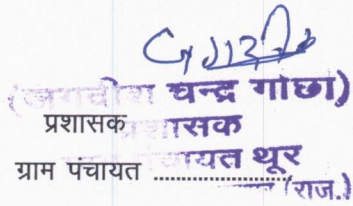 (जगदीश चन्द्र गोछा)
प्रशासक प्रशासक
ग्राम पंचायत .................... पंचायत थूर
(राज.)